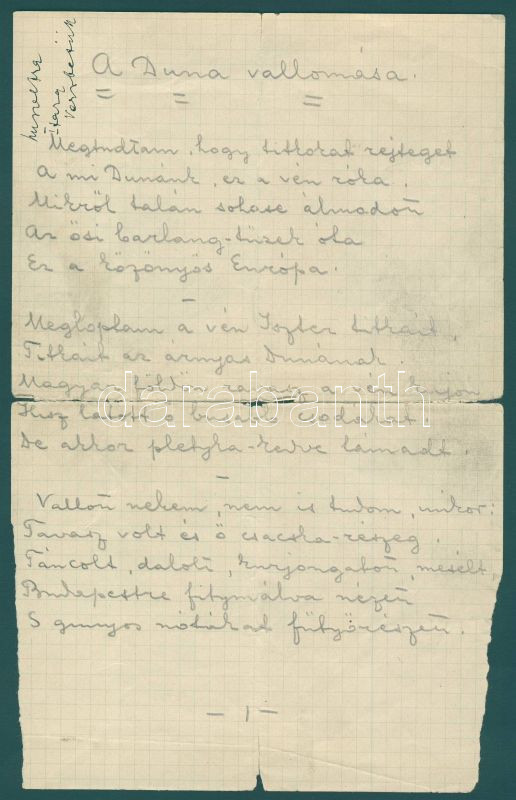 A Duna vallomása.
Megtudtam, hogy titkokat rejteget
A mi Dunánk, ez a vén róka,
Mikről talán sohase álmodott
Az ősi barlang-tüzek óta
Ez a közönyös Európa.
Megloptam a vén Iszter titkait,
Titkait az árnyas Dunának.
Magyar földön ravasz a vén kujon
Hisz látott ő bezáró csodákat
De akkor pletyka-kedve támadt.
Vallott nekem, nem is tudom, mikor:
Tavasz volt és ő csacska-részeg.
Táncolt, dalolt, kurjongatott, mesélt,
Budapestre fitymálva nézett
S gunyos nótákat fütyörészett.
- 1 -
darabanth